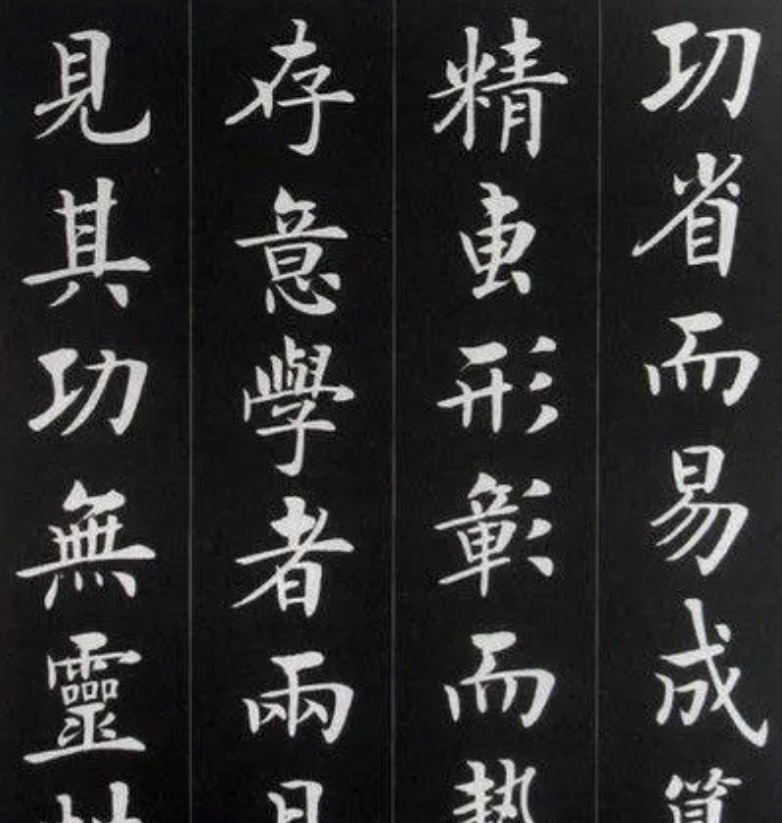 㓛省而易成
精䖝形彰而
存意學者兩
見其功無靈